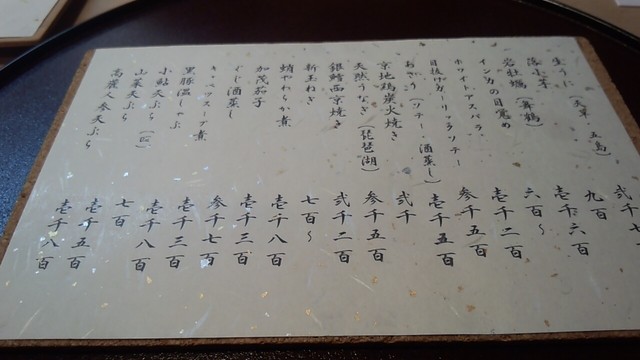 生うに(天草・五島) 弐千七
九百
岩牡蠣(舞鶴) 壱千六百
インカの目覚め 六百~
ホワイトアスパラ 壱千二百
参千五百
(ソテー・酒蒸し) 壱千五百
京地鶏炭火焼き 弐千
天然うなぎ(琵琶湖) 参千五百
銀鱈西京焼き 弐千二百
新玉ねぎ 七百~
蛸やわらか煮 壱千八百
加茂茄子 壱千三百
ぐじ酒蒸し 参千七百
キャベツスープ煮 壱千三百
黒豚温しゃぶ 壱千八百
小鮎天ぷら 七百
山菜天ぷら 壱千五百
高麗人参天ぷら 壱千八百